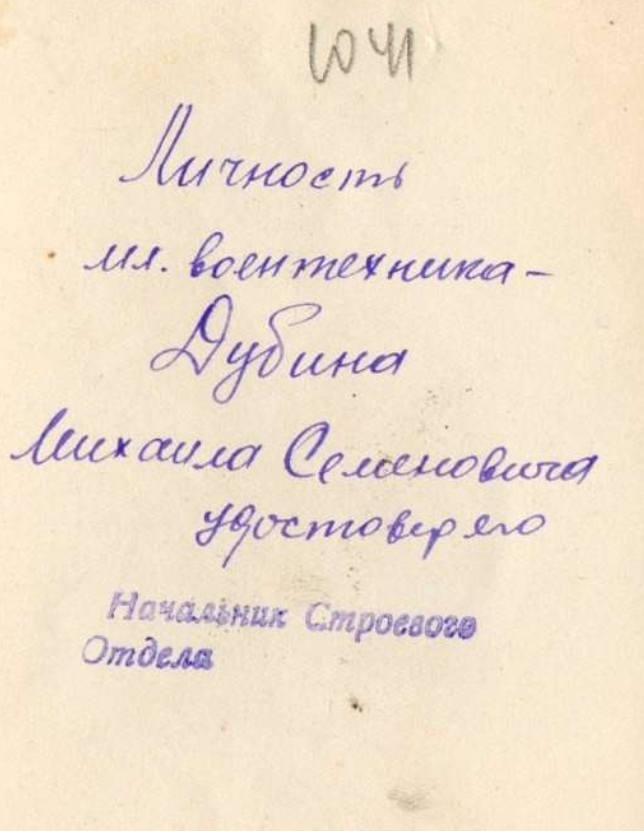 1041
Личность
мл. воентехника-
Дубина
Михаила Семеновича
удостоверяю
Начальник Строевого
Отдела